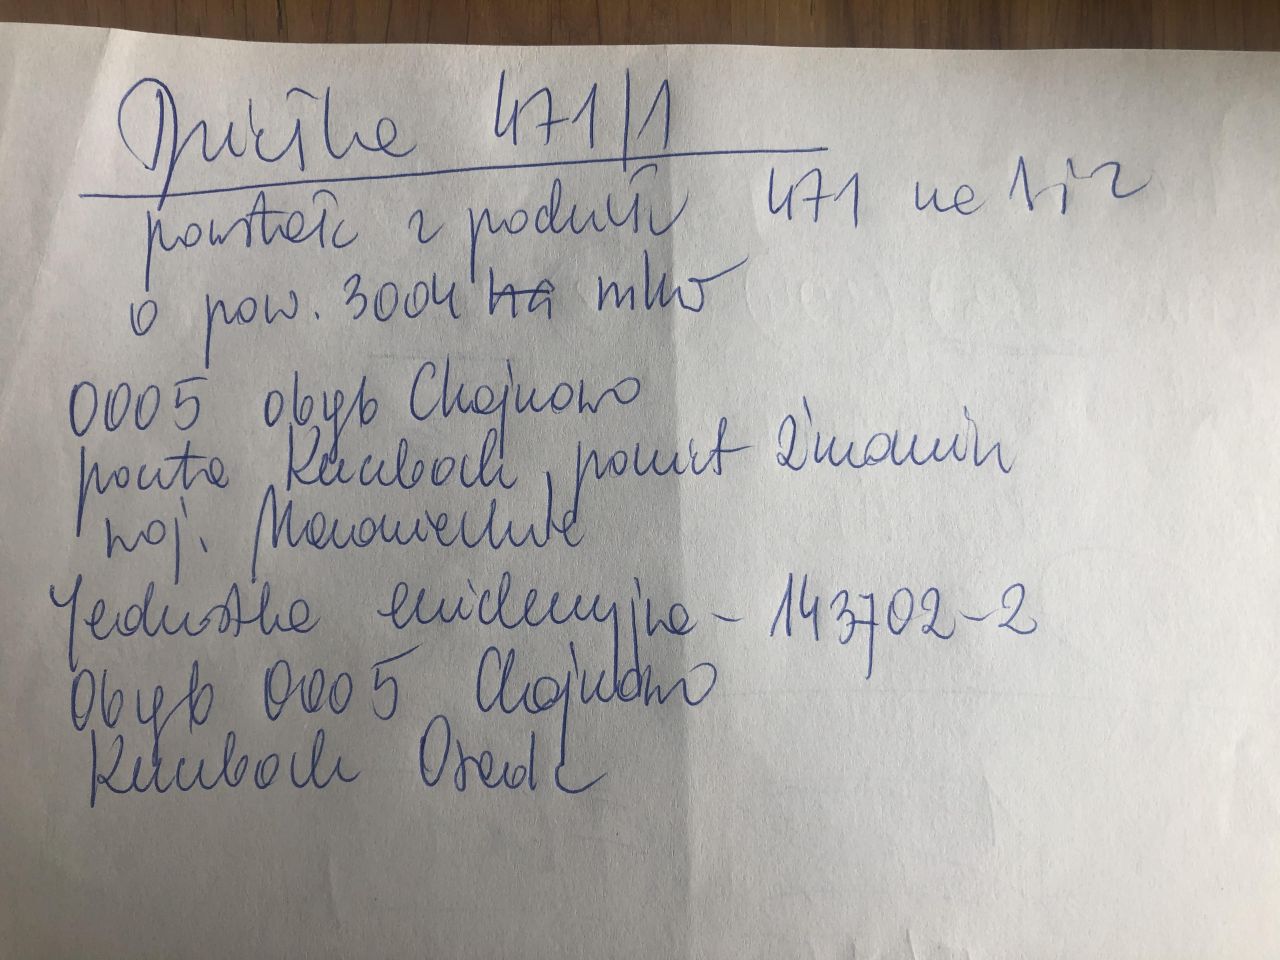 Działka 471/1
powstała z podziału 471 na 1 i 2
o pow. 3004 ha mkw
0005 obręb Chojnowo
poczta Kuczbork, powiat Żuromin
woj. Mazowieckie
Jednostka ewidencyjna - 143702-2
Obręb 0005 Chojnowo
Kuczbork Osada